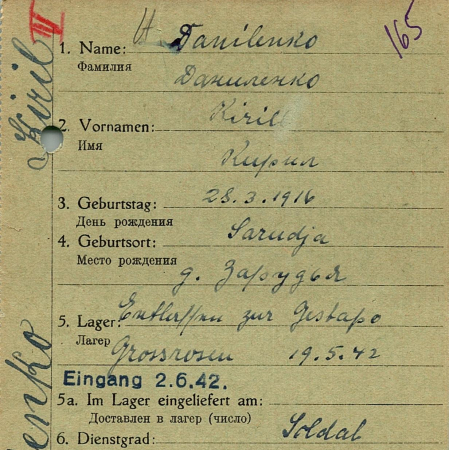 165
IV
1. Name: Danilenko
Фамилия
Даниленко
2. Vornamen: Kirill
Имя
Кирил
3. Geburtstag: 28.3.1916
День рождения
4. Geburtsort: Sarudja
Место рождения
д. Зарудья
5. Lager: Entlassen zur Gestapo
Лагер
Grossrosen 19.5.42
Eingang 2.6.42.
5a. Im Lager eingeliefert am:
Доставлен в лагер (число)
6. Dienstgrad: Soldat
Kiril
enko